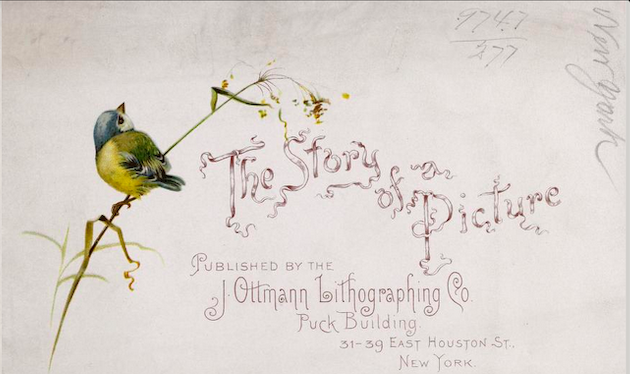 974.7
277
New York
The Story
of a
Picture
PUBLISHED BY THE
J. Ottmann Lithographing Co.
PUCK BUILDING.
31-39 EAST HOUSTON ST.,
NEW YORK.